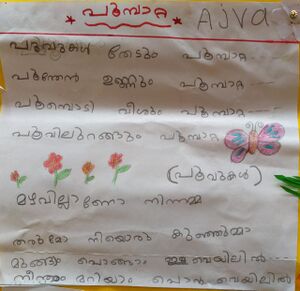 പൂമ്പാറ്റ
Ajva
പൂവുകൾ തേടും പൂമ്പാറ്റ
പൂന്തേൻ ഉണ്ണും പൂമ്പാറ്റ
പൂമ്പൊടി വീശും പൂമ്പാറ്റ
പൂവിലുറങ്ങും പൂമ്പാറ്റ
(പൂവുകൾ)
മഴവില്ലാണോ നിന്നമ്മ
തരുമോ നീയൊരു കുഞ്ഞുമ്മ
പൊങ്ങാം ഇള വെയിലിൽ
നീന്തി മറിയാം പൊൻ വെയിലിൽ